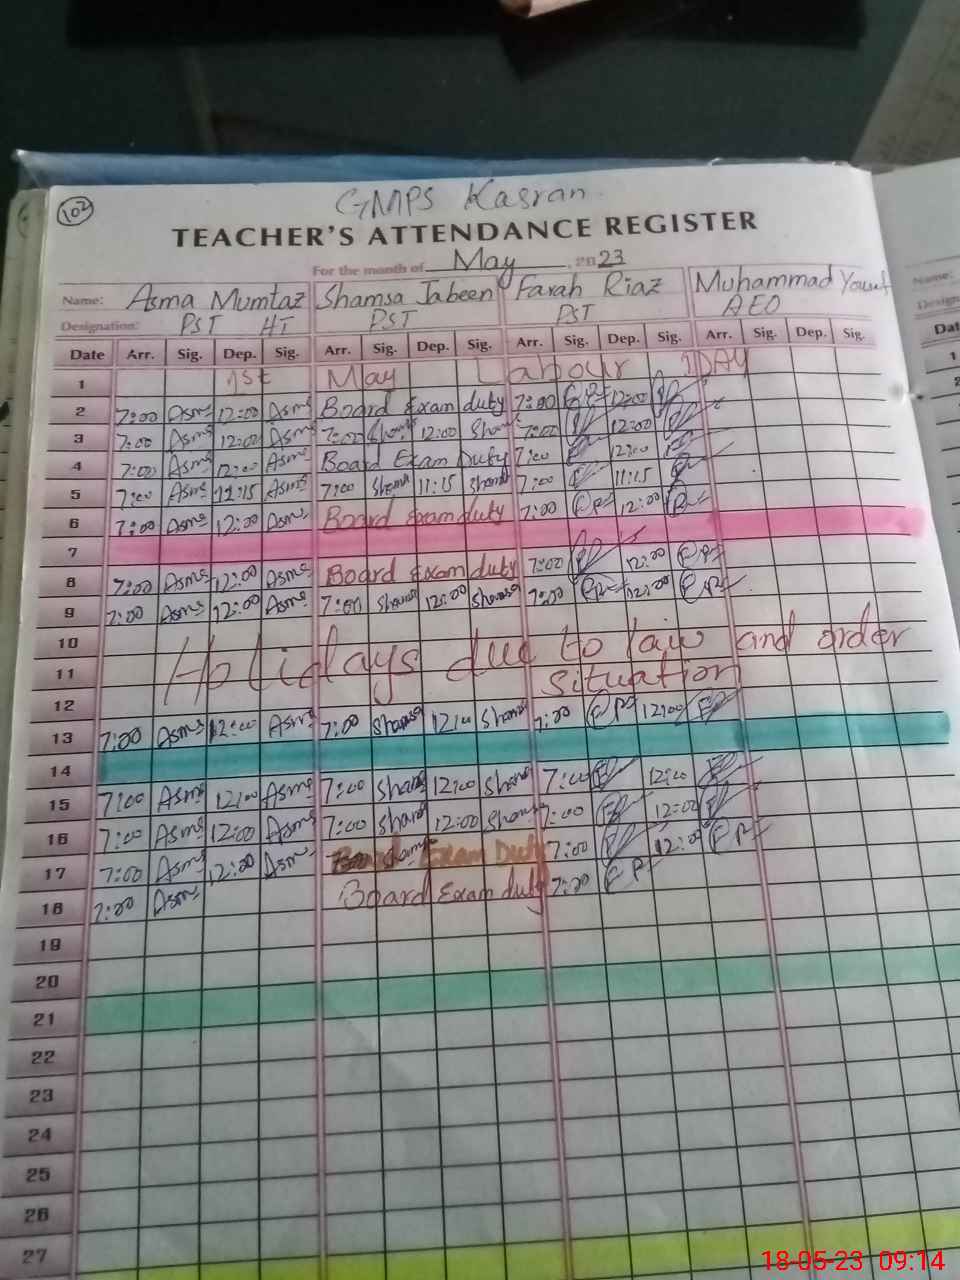 102
GMPS Kasran
TEACHER'S ATTENDANCE REGISTER
For the month of May, 2023
Name: Asma Mumtaz Shamsa Jabeen Farah Riaz Muhammad Yousaf
Designation: PST HT PST PST AEO
Date Arr. Sig. Dep. Sig. Arr. Sig. Dep. Sig. Arr. Sig. Dep. Sig. Arr. Sig. Dep. Sig.
1 1st May Labour DAY
2 7:00 Asma 12:00 Asma Board Exam duty 7:00 12:00
3 7:00 Asma 12:00 Asma 7:00 Shamsa 12:00 Shamsa 7:00 12:00
4 7:00 Asma 12:00 Asma Board Exam Duty 7:00 12:00
5 7:00 Asma Asma 7:00 Shamsa 11:15 Shamsa 7:00 11:15
6 7:00 Asma 12:00 Asma Board Exam duty 7:00 12:00
7
8 7:00 Asma 12:00 Asma Board Exam duty 7:00 12:00
9 7:00 Asma 12:00 Asma 7:00 Shamsa 12:00 Shamsa 7:00 12:00
10 Holidays due to law and order
11 situation
12 7:00 Asma 12:00 Asma 7:00 Shamsa 12:00 Shamsa 7:00 12:00
13
14
15 7:00 Asma 12:00 Asma 7:00 Shamsa 12:00 Shamsa 7:00 12:00
16 7:00 Asma 12:00 Asma 7:00 Shamsa 12:00 Shamsa 7:00 12:00
17 7:00 Asma 12:00 Asma Board Exam Duty 7:00 12:00
18 7:00 Asma Board Exam duty 7:00
19
20
21
22
23
24
25
26
27
Name:
Dat
1
18-05-23 09:14